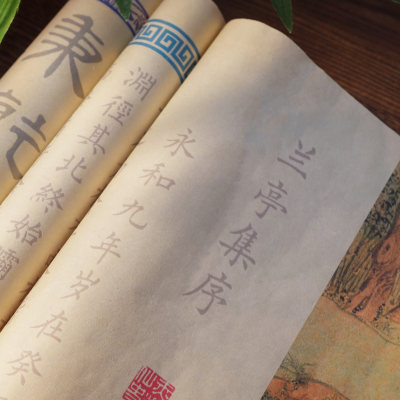 兰亭集序
永和九年岁在癸
淵徑其北終始
秉